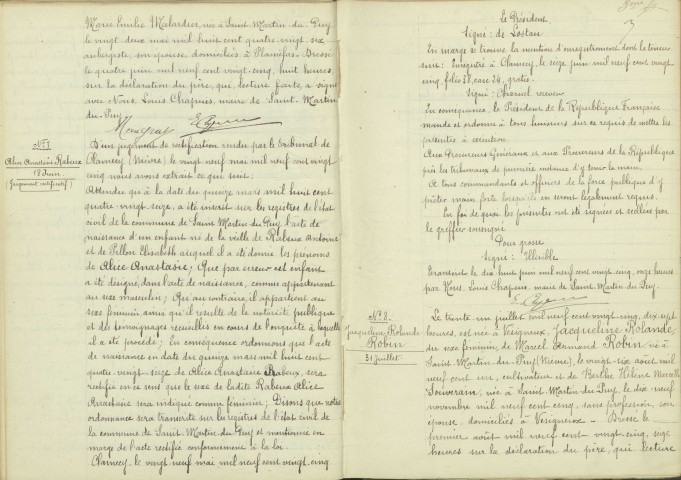 Marie Emilie Malardier, née à Saint-Martin-du-Puy
le vingt deux mai mil huit cent quatre-vingt-six
aubergiste, son épouse domiciliés à Plainefas. - Dressé
le quatre juin mil neuf cent vingt-cinq, huit heures,
sur la déclaration du père, qui, lecture faite, a signé
avec Nous, Louis Chapuis, maire de Saint-Martin
du-Puy.
N° 7
Alice Anastasie Rabeux
18 Juin
(Jugement rectificatif)
D'un jugement de rectification rendu par le tribunal de
Clamecy (Nièvre), le vingt neuf mai mil neuf cent vingt
cinq nous avons extrait ce qui suit:
Attendu qu'à la date du quinze mars mil huit cent
quatre-vingt-seize, a été inscrit sur les registres de l'état
civil de la commune de Saint-Martin du Puy l'acte de
naissance d'un enfant né de la veille de Rabeux Antoine
et de Pillon Elisabeth auquel il a été donné les prénoms
de Alice Anastasie; Que par erreur cet enfant
a été désigné, dans l'acte de naissance, comme appartenant
au sexe masculin; Qu'au contraire, il appartient au
sexe féminin ainsi qu'il résulte de la notoriété publique
et des témoignages recueillis en cours de l'enquête à laquelle
il a été procédé; En conséquence ordonnons que l'acte
de naissance en date du quinze mars mil huit cent
quatre-vingt-seize de Alice Anastasie Rabeux, sera
rectifié en ce sens que le sexe de ladite Rabeux Alice
Anastasie sera indiqué comme féminin; Disons que notre
ordonnance sera transcrite sur les registres de l'état civil de
la commune de Saint-Martin-du-Puy et mentionnée en
marge de l'acte rectifié conformément à la loi.
Clamecy, le vingt neuf mai mil neuf cent vingt-cinq
Le Président,
Signé: de Lostau
En marge se trouve la mention d'enregistrement dont la teneur
suit: Enregistré à Clamecy, le seize juin mil neuf cent vingt
cinq, folio 38, case 24, gratis.
Signé: receveur
En conséquence, le Président de la République Française
mande et ordonne à tous huissiers sur ce requis de mettre les
présentes à exécution.
Aux Procureurs Généraux et aux Procureurs de la République
près les tribunaux de première instance d'y tenir la main.
A tous commandants et officiers de la force publique d'y
prêter main forte lorsqu'ils en seront légalement requis.
En foi de quoi les présentes ont été signées et scellées par
le greffier soussigné
Pour grosse
Signé: Illisible
Transcrit le dix huit juin mil neuf cent vingt-cinq, onze heures
par Nous, Louis Chapuis, maire de Saint-Martin du Puy.
N° 8.
Jacqueline Rolande
Robin
31 juillet
Le trente-un juillet mil neuf cent vingt-cinq, dix-sept
heures, est née à Vésigneux, Jacqueline Rolande,
du sexe féminin, de Marcel Fernand Robin né à
Saint-Martin-du-Puy (Nièvre), le vingt-six août mil
neuf cent un, cultivateur et de Berthe Hélène Marcelle
Souverain, née à Saint-Martin du Puy, le dix-neuf
novembre mil neuf cent cinq, sans profession, son
épouse, domiciliés à Vésigneux. - Dressé le
premier août mil neuf cent vingt-cinq, seize
heures sur la déclaration du père, qui, lecture